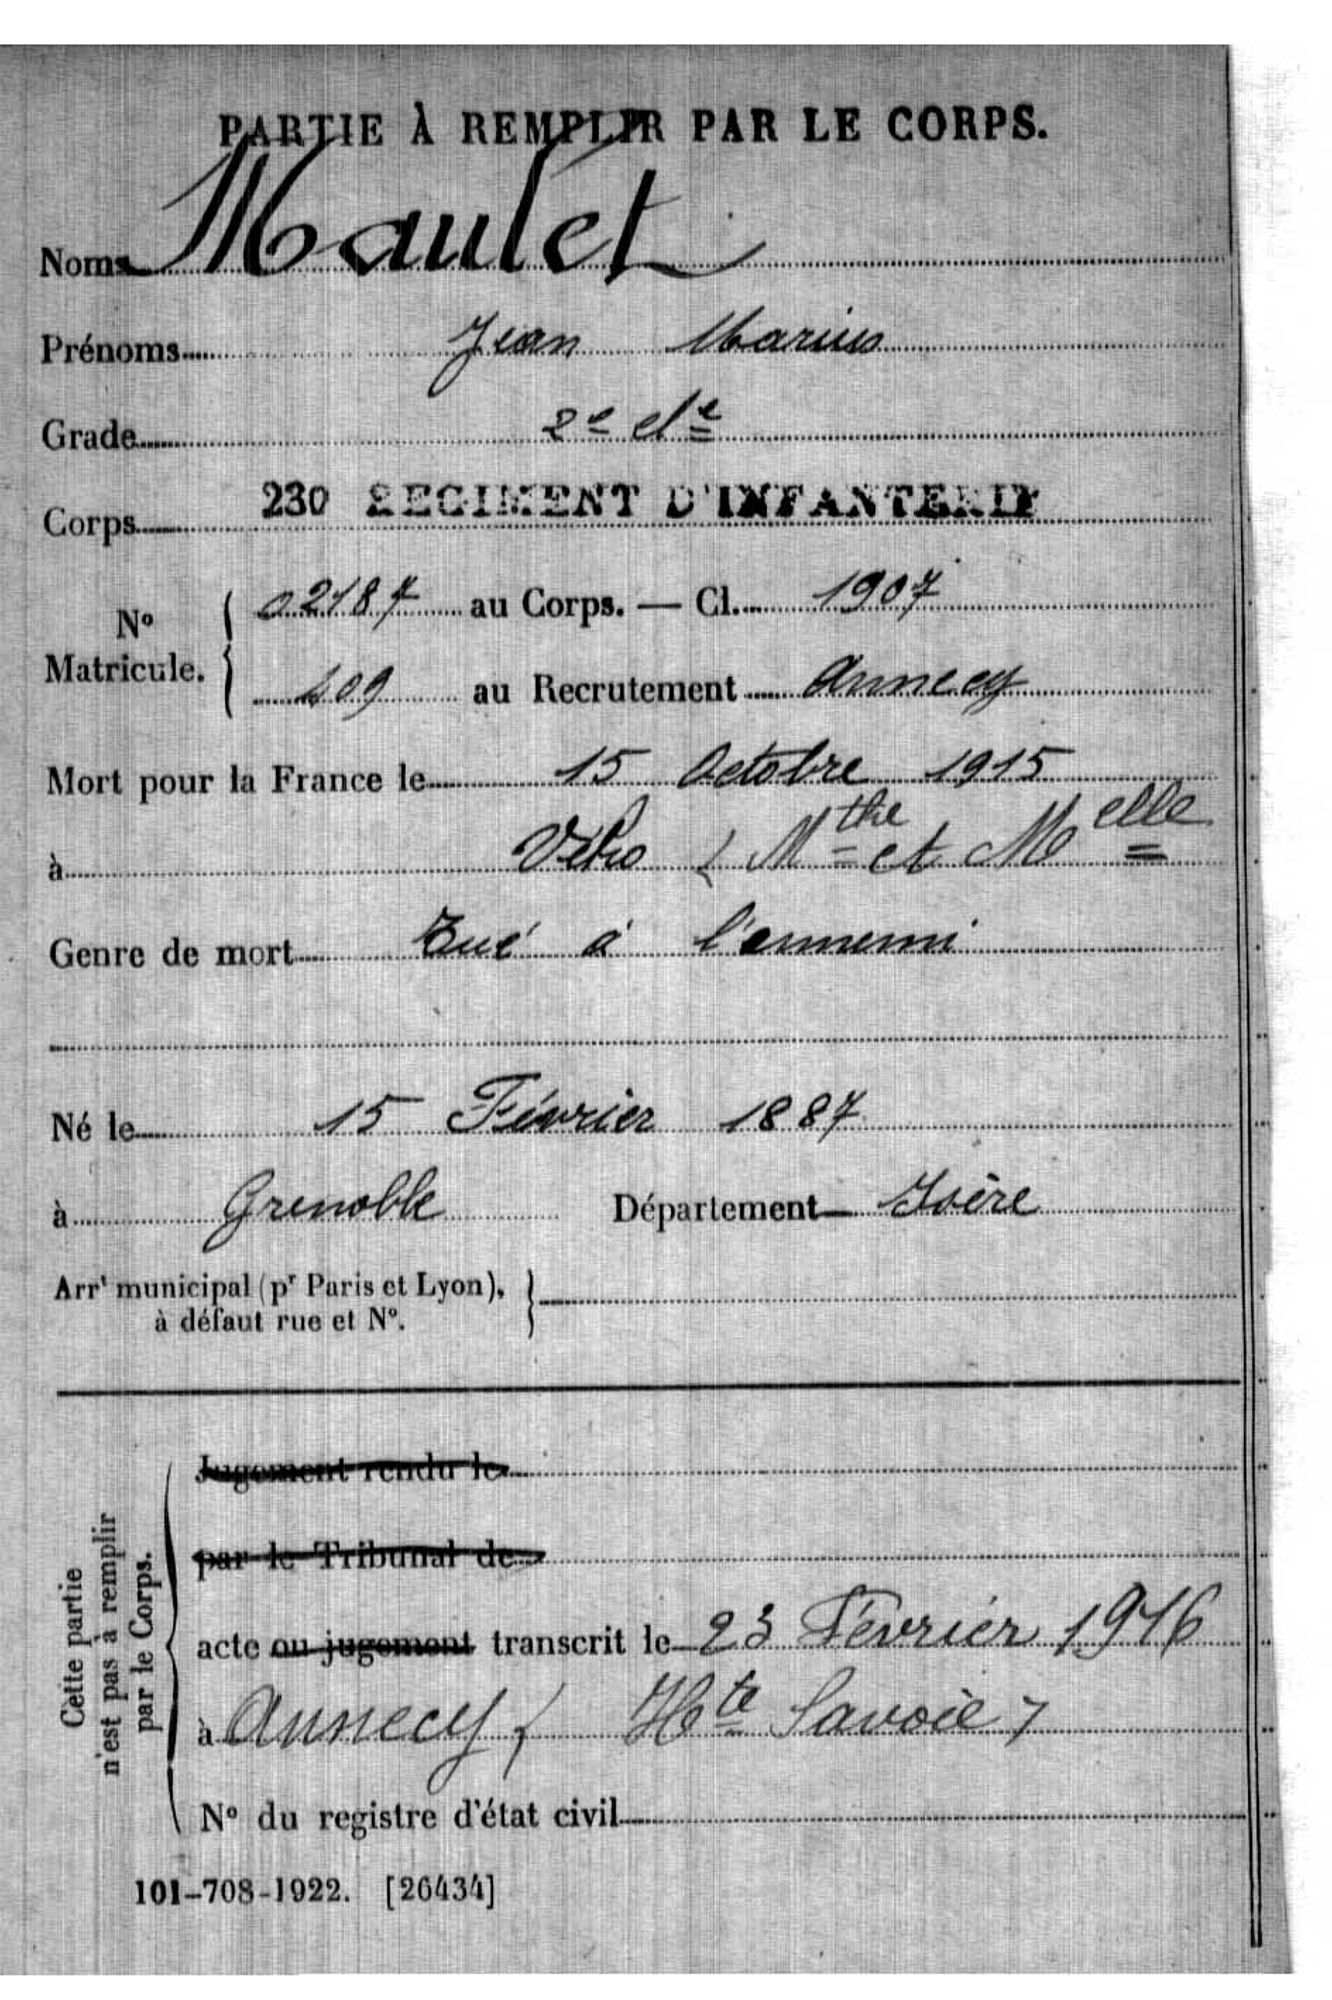 PARTIE À REMPLIR PAR LE CORPS.
Noms Maulet
Prénoms Jean Marius
Grade 2e cle
Corps 230 REGIMENT D'INFANTERIE
No Matricule. { 02187 au Corps. — Cl. 1907
409 au Recrutement Annecy
Mort pour la France le 15 Octobre 1915
à Vého ( Mthe et Melle
Genre de mort Tué à l'ennemi
Né le 15 Février 1887
à Grenoble Département Isère
Arrt municipal (pr Paris et Lyon), }
à défaut rue et No.
Cette partie
n'est pas à remplir
par le Corps.
Jugement rendu le
par le Tribunal de
acte ou jugement transcrit le 23 Février 1916
à Annecy ( Hte Savoie )
No du registre d'état civil
101-708-1922. [26434]